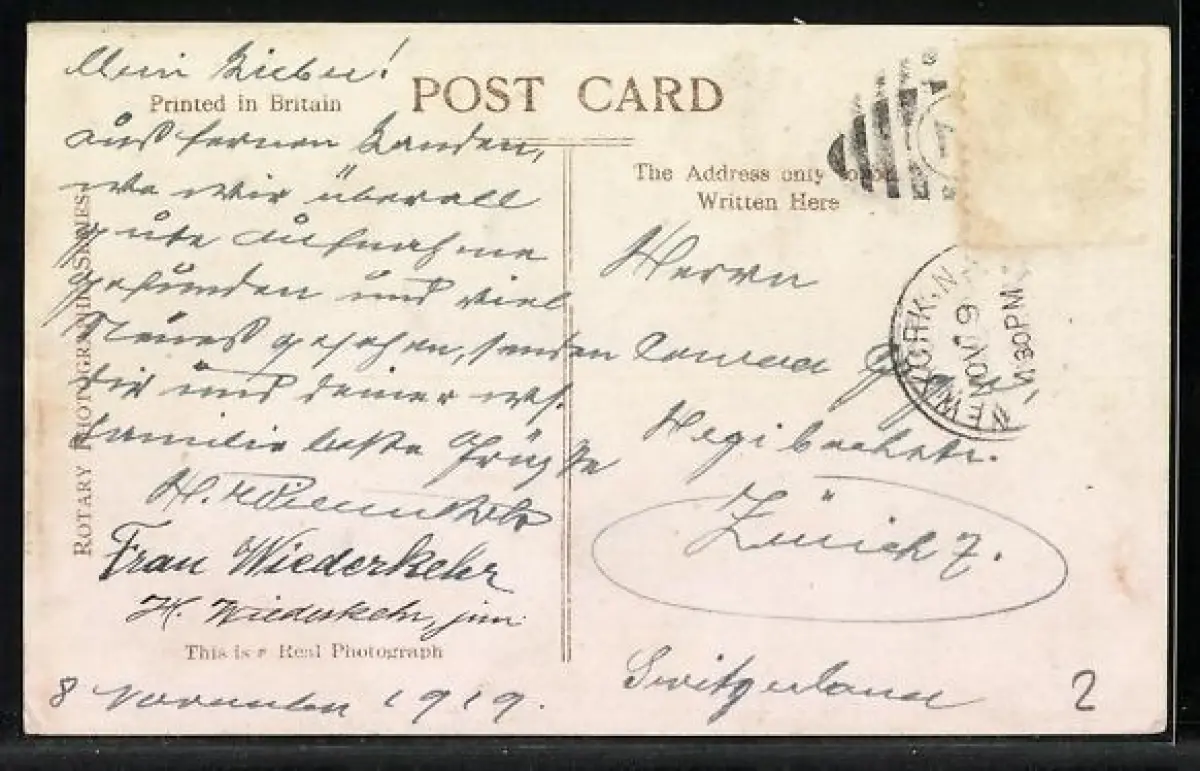 Mein Lieber!
Printed in Britain
POST CARD
aus fernen Landen,
wo wir überall
gute Aufnahme
gefunden und viel
Neues gesehen, senden
dir und deiner
Familie beste Grüsse
H.
Frau Wiederkehr
H. Wiederkehr, jun.
This is a Real Photograph
8 November 1919.
ROTARY PHOTOGRAPHIC SERIES
The Address only to be
Written Here
Herrn
Hegibachstr.
Zürich 7.
Switzerland
2
NEW YORK, N.
NOV 9
30 PM